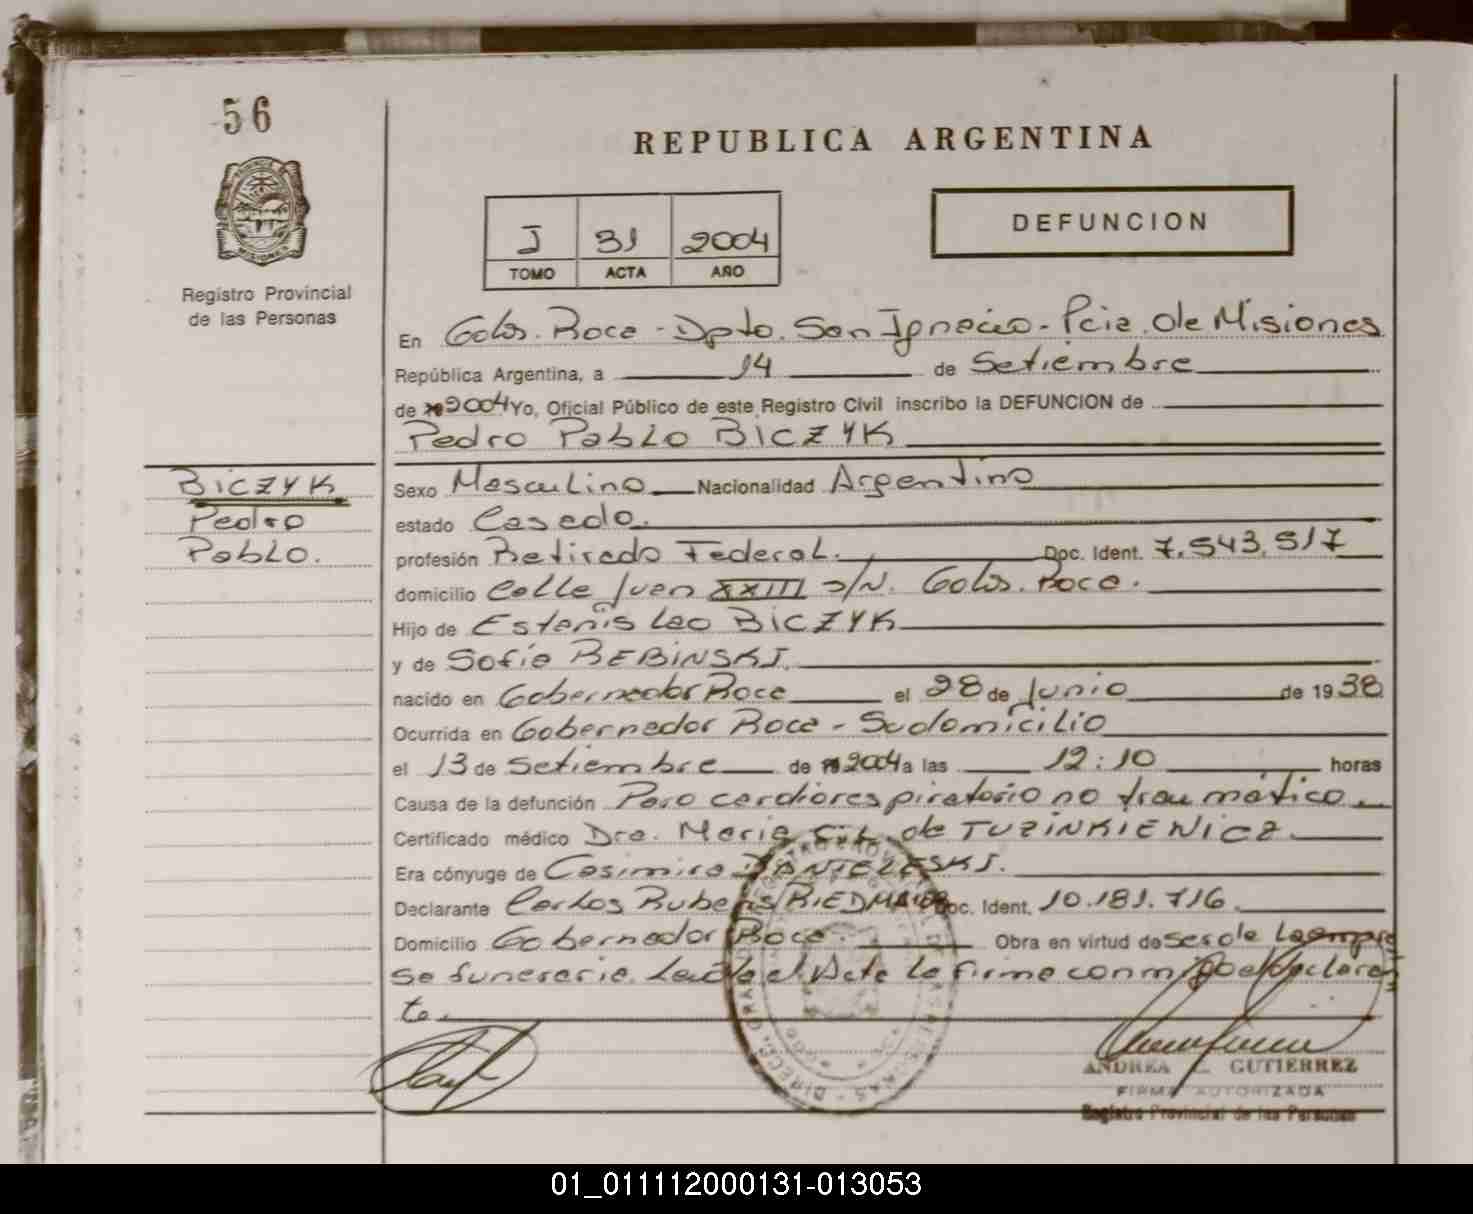 56
REPUBLICA ARGENTINA
DEFUNCION
J 31 2004
TOMO ACTA AÑO
Registro Provincial
de las Personas
En Gdor. Roca - Dpto. San Ignacio - Pcia. de Misiones
República Argentina, a 14 de Setiembre
de 2004 Yo, Oficial Público de este Registro Civil inscribo la DEFUNCION de
Pedro Pablo BICZYK
BICZYK
Pedro
Pablo.
Sexo Masculino Nacionalidad Argentino
estado Casado.
profesión Retirado Federal. Doc. Ident. 7.543.517
domicilio Calle Juan XXIII s/N. Gdor. Roca.
Hijo de Estanislao BICZYK
y de Sofia REBINSKI.
nacido en Gobernador Roca el 28 de Junio de 1938
Ocurrida en Gobernador Roca - Su domicilio
el 13 de Setiembre de 2004 a las 12:10 horas
Causa de la defunción Paro cardiorespiratorio no traumático
Certificado médico Dra. Maria de TUZINKIEWICZ
Era cónyuge de Casimira DANIELESKI.
Declarante Carlos Rubens RIEDMAIER Doc. Ident. 10.181.716
Domicilio Gobernador Roca. Obra en virtud de ser de la empre
sa funeraria. Leída el Acta la firma conmigo el declaran
te.
ANDREA GUTIERREZ
FIRMA AUTORIZADA
Registro Provincial de las Personas
01_011112000131-013053